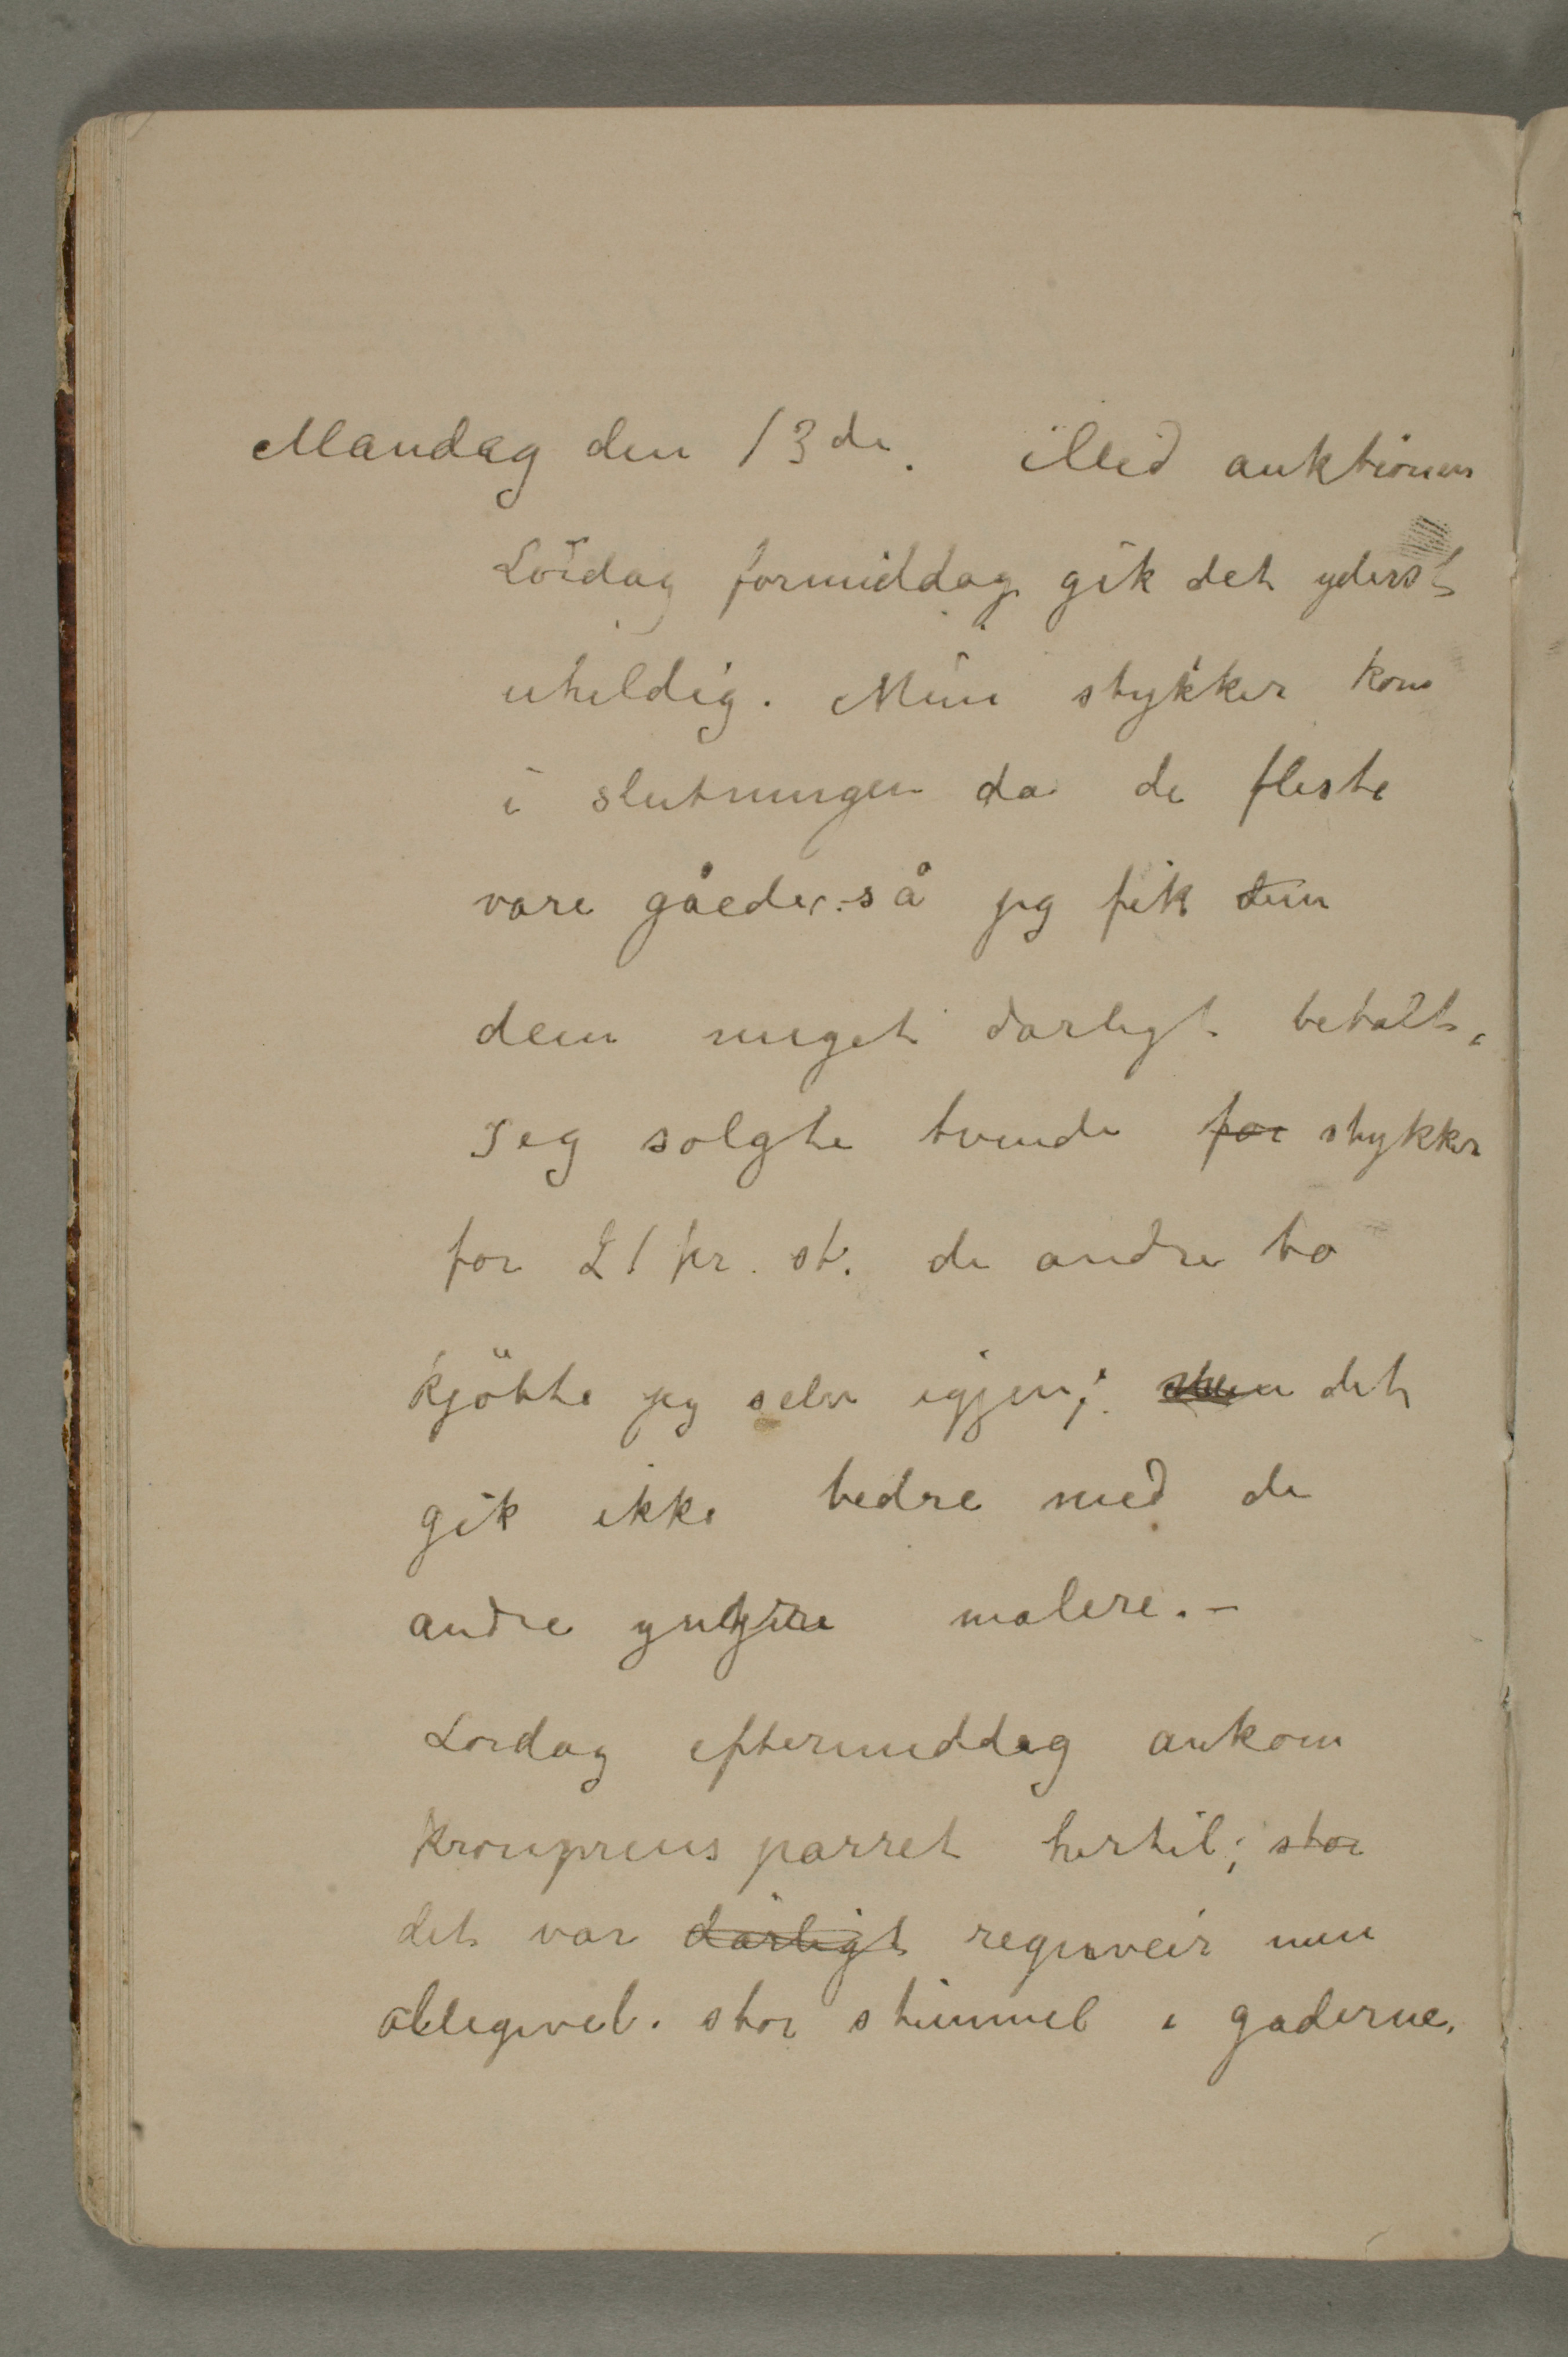 Mandag den 13de. Med auktionen
Lördag formiddag gik det yderst
uheldig. Mine stykker kom
i slutningen da de fleste
vare gåede;så jeg fik dem
dem meget darligt betalt.
Jeg solgte tvende for stykker
for 21 kr. st. de andre to
kjöbte jeg selv igjen; men det
gik ikke bedre med de
andre yngre malere.–
Lordag eftermiddag ankom
Kronprins parret hertil; stor
det var dårligt regnveir men
alligevel. stor stimmel i gaderne.